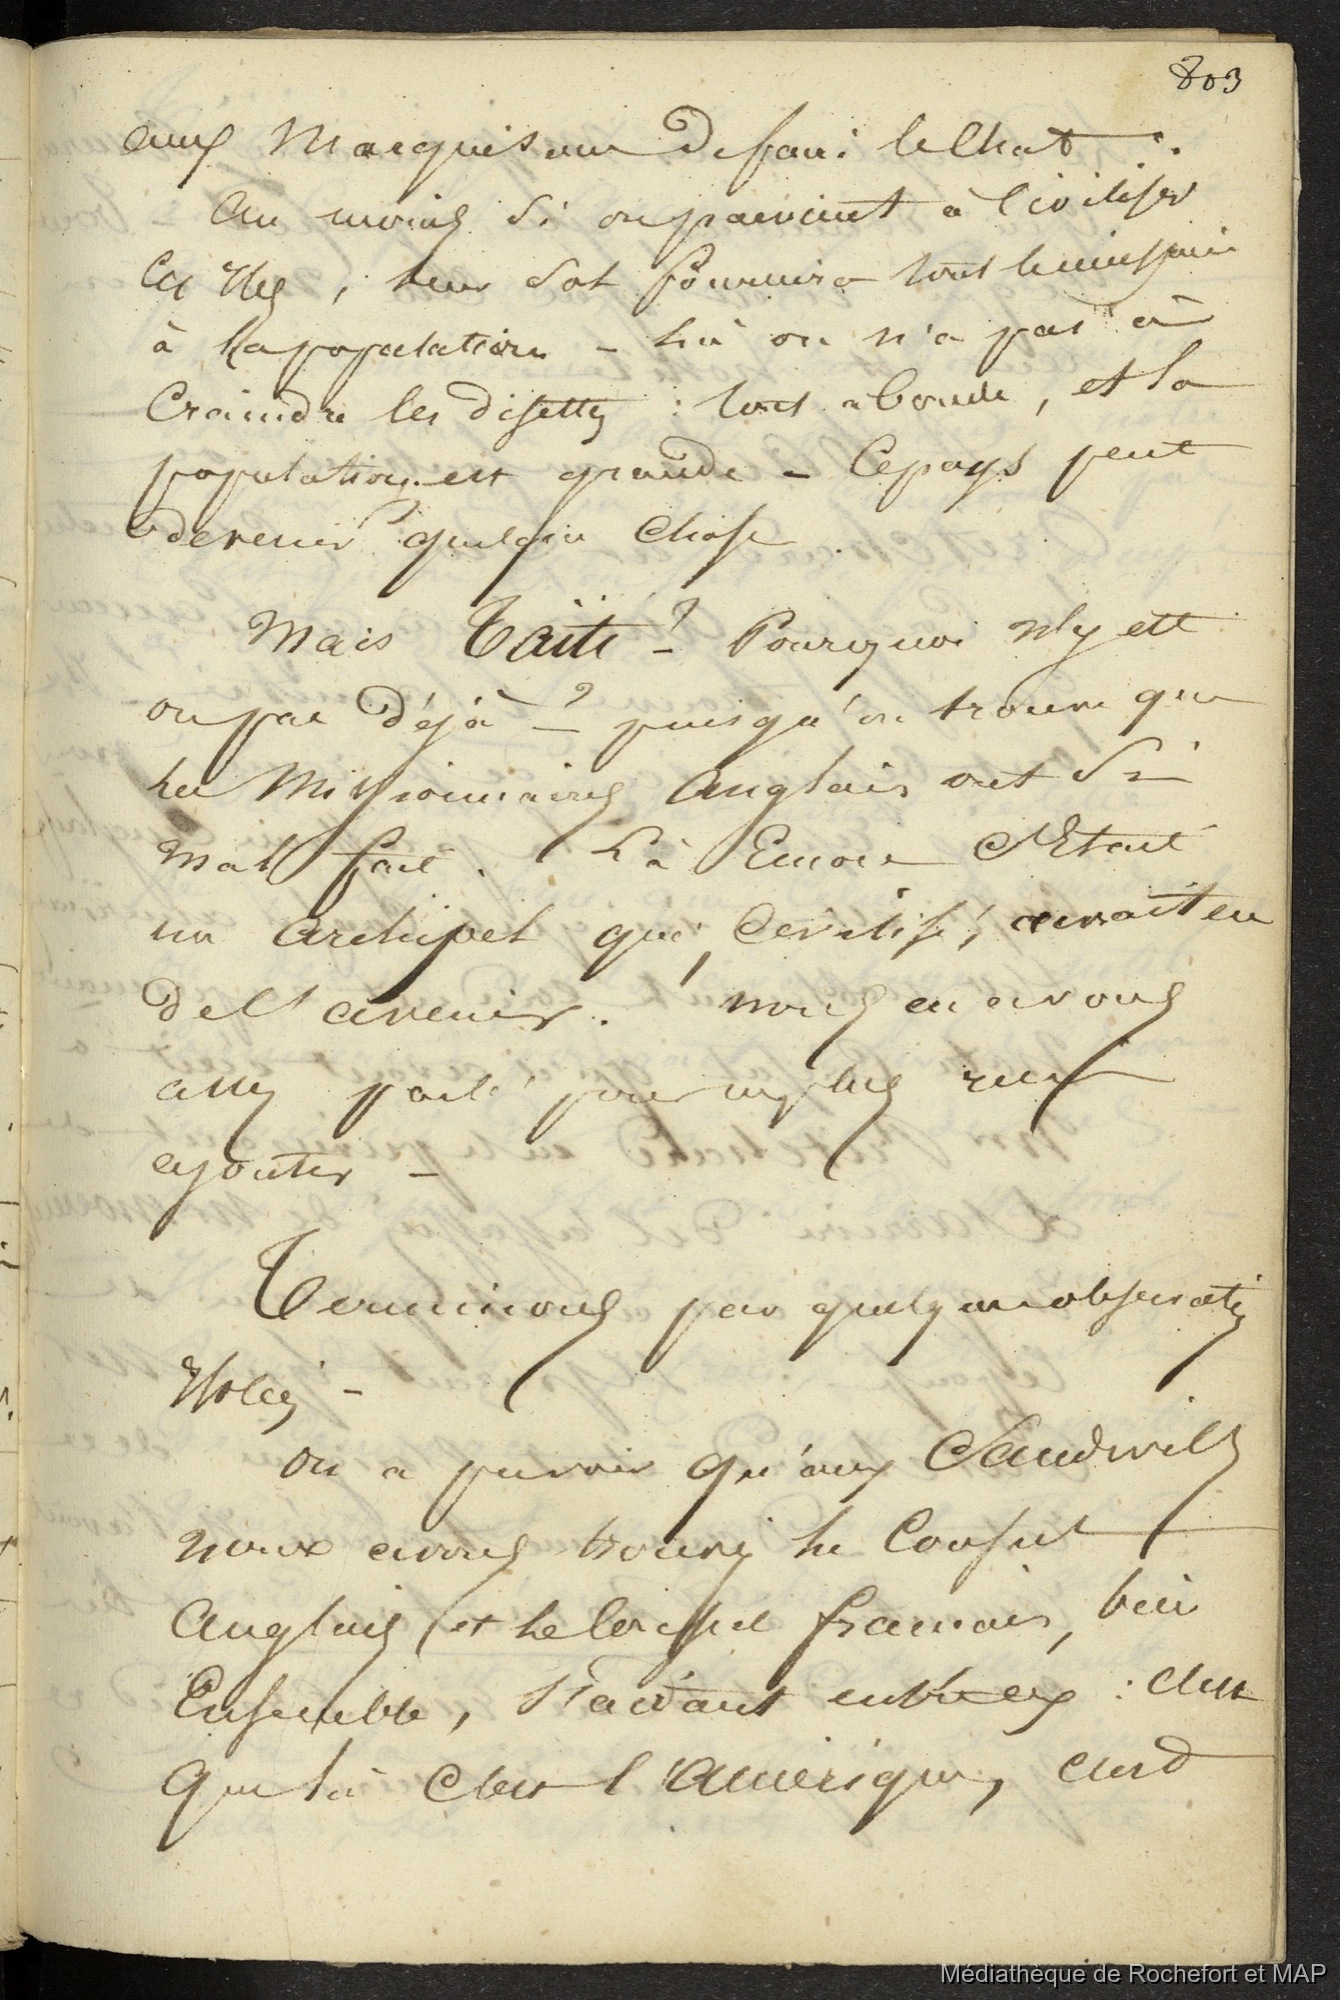 803
aux Marquises de faire le Chat ..
Au moins si on parvient à Civiliser
Ces Iles, leur Sol fournira tout le nécessaire
à la population - Là on n'a pas à
Craindre les disettes : tout abonde, et la
population est grande - Ce pays peut
devenir quelque Chose .
Mais Taïti - ? Pourquoi n'y est
on pas déjà - ? puisqu'on trouve que
les Missionnaires Anglais ont si
mal fait . Là Encore C'Etait
un Archipel qui, Civilisé, aurait eu
de l'avenir. Nous en avons
assez parlé pour n'y plus rien
ajouter -
Terminons par quelques observations
Isolées -
On a pu voir qu'aux Sandwich
nous avons trouvé le Consul
Anglais et le Consul français, bien
Ensemble, s'aidant entr'eux : C'est
que là C'est l'Amérique,